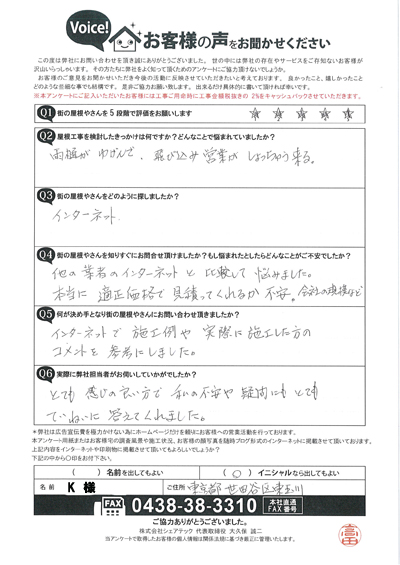 Voice!
お客様の声をお聞かせください
この度は弊社にお問い合わせを頂き誠にありがとうございました。世の中には弊社の存在やサービスをご存知ないお客様が
沢山いらっしゃいます。その方たちに弊社をよく知って頂くためのアンケートにご協力頂けないでしょうか。
お客様のご意見をお聞かせいただき今後の活動に反映させていただきたいと考えております。良かったこと、嬉しかったこと
どのような些細な事でも結構です。是非ご協力お願い致します。出来るだけ具体的に書いて頂ければ幸いです。
※本アンケートにご記入いただいたお客様には工事ご用命時に工事金額税抜きの 2%をキャッシュバックさせていただきます。
Q1 街の屋根やさんを5段階で評価をお願いします ★ ★ ★ ★ ★
Q2 屋根工事を検討したきっかけは何ですか？どんなことで悩まれていましたか？
雨樋が ゆがんで、飛び込み営業が しょっちゅう来る。
Q3 街の屋根やさんをどのように探しましたか？
インターネット
Q4 街の屋根やさんを知りすぐにお問合せ頂けましたか？もし悩まれたとしたらどんなことがご不安でしたか？
他の業者のインターネットと比較して悩みました。
本当に適正価格で見積ってくれるか不安。会社の規模など
Q5 何が決め手となり街の屋根やさんにお問い合わせ頂きましたか？
インターネットで施工例や実際に施工した方の
コメントを参考にしました。
Q6 実際に弊社担当者がお伺いしていかがでしたか？
とても感じの良い方で私の不安や疑問にもとても
ていねいに答えてくれました。
＊弊社は広告宣伝費を極力かけない為にホームページだけを頼りお客様への営業活動を行っております。
本アンケート用紙またはお客様宅の調査風景や施工状況、お客様の顔写真を随時ブログ形式のインターネットに掲載させて頂いております。
上記内容をインターネットや印刷物に掲載させて頂いてもよろしいでしょうか？
下記の中から〇印をお付け下さい。
（ ）名前を出してもよい （〇）イニシャルなら出してもよい
名前 K 様 ご住所 東京都世田谷区東玉川
FAX 0438-38-3310 本社直通 FAX番号
ご協力ありがとうございました。
株式会社シェアテック 代表取締役 大久保 誠二
当アンケートで取得したお客様の個人情報は関係法規に基づき厳正に管理いたします。
高田